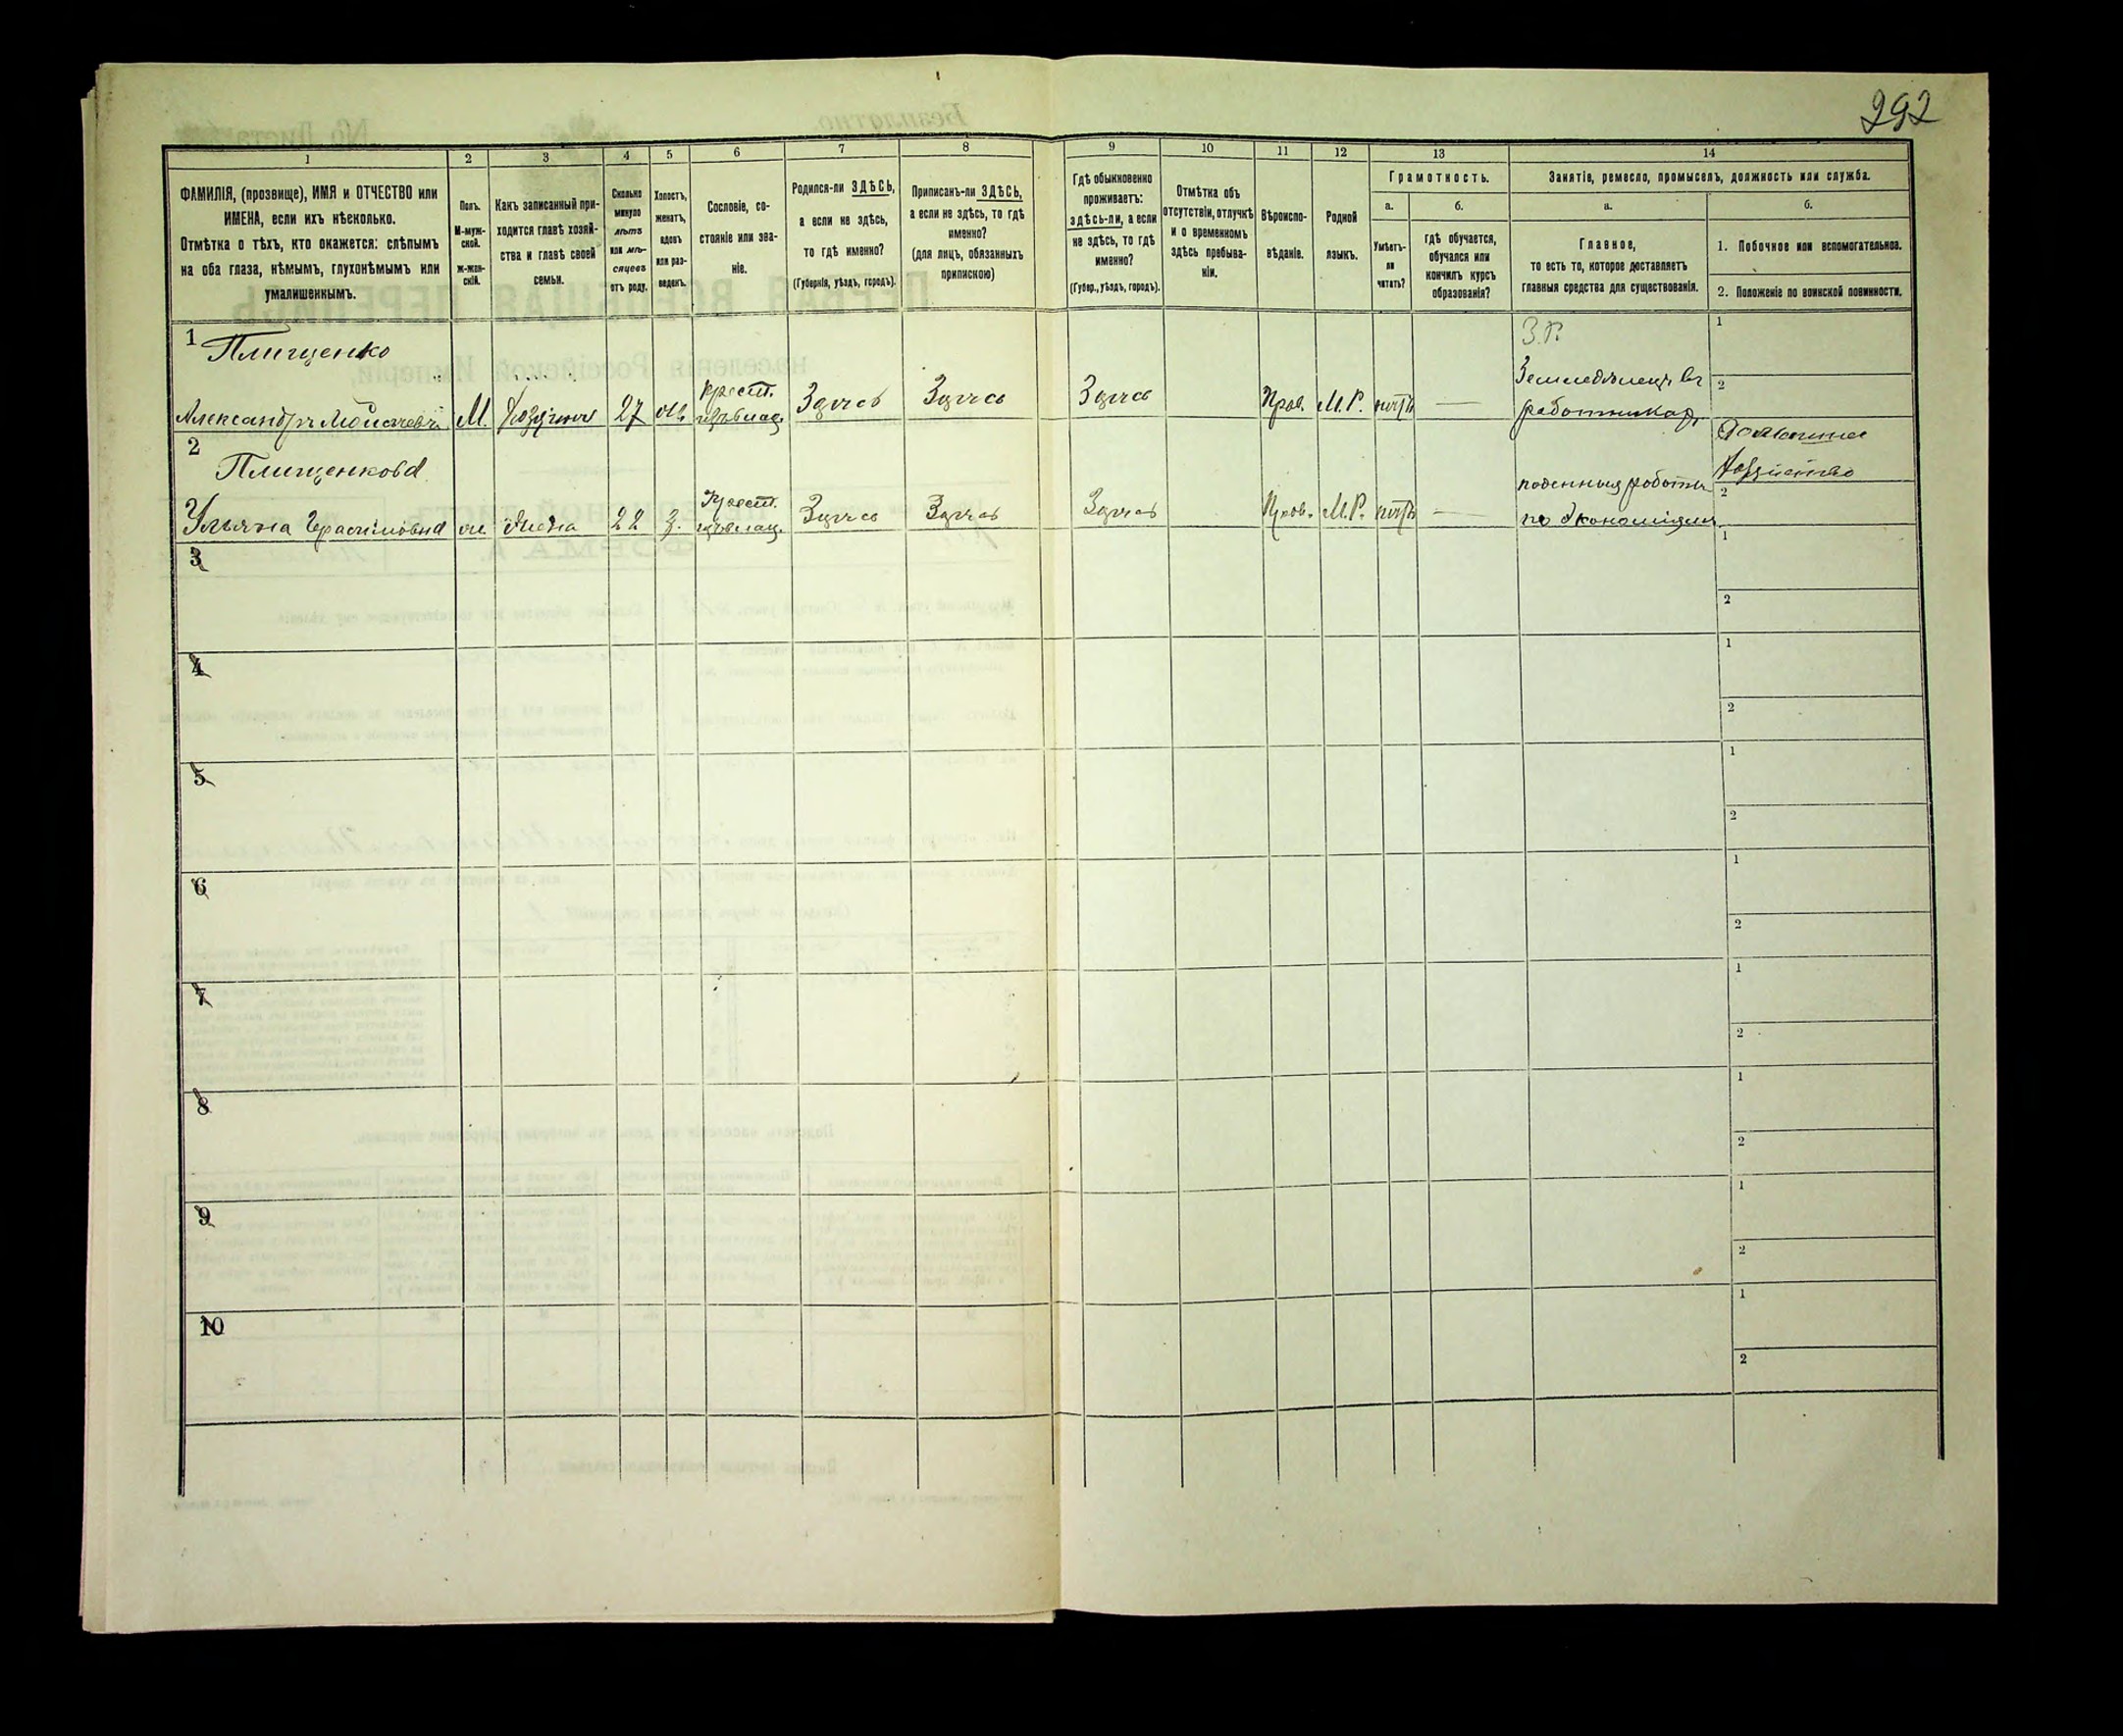 292
1 2 3 4 5 6 7 8 9 10 11 12 13 14
ФАМИЛІЯ, (прозвище), ИМЯ и ОТЧЕСТВО или
ИМЕНА, если ихъ нѣсколько.
Отмѣтка о тѣхъ, кто окажется: слѣпымъ
на оба глаза, нѣмымъ, глухонѣмымъ или
умалишеннымъ.
Полъ.
М-муж-
ской.
ж-жен-
скій.
Какъ записанный при-
ходится главѣ хозяй-
ства и главѣ своей
семьи.
Сколько
минуло
лѣтъ
или мѣ-
сяцевъ
отъ роду.
Холостъ,
женатъ,
вдовъ
или раз-
веденъ.
Сословіе, со-
стояніе или зва-
ніе.
Родился-ли ЗДѢСЬ,
а если не здѣсь,
то гдѣ именно?
(Губернія, уѣздъ, городъ).
Приписанъ-ли ЗДѢСЬ,
а если не здѣсь, то гдѣ
именно?
(для лицъ, обязанныхъ
припискою)
Гдѣ обыкновенно
проживаетъ:
здѣсь-ли, а если
не здѣсь, то гдѣ
именно?
(Губер., уѣздъ, городъ).
Отмѣтка объ
отсутствіи, отлучкѣ
и о временномъ
здѣсь пребыва-
ніи.
Вѣроиспо-
вѣданіе.
Родной
языкъ.
Грамотность.
а.
Умѣетъ-
ли
читать?
б.
гдѣ обучается,
обучался или
кончилъ курсъ
образованія?
Занятіе, ремесло, промыселъ, должность или служба.
а.
Главное,
то есть то, которое доставляетъ
главныя средства для существованія.
б.
1. Побочное или вспомогательное.
2. Положеніе по воинской повинности.
1 Плищенко
Александръ М. 27 крест. Здѣсь Здѣсь Здѣсь Прав. М.Р. нѣтъ —
З.Р.
Земледѣлецъ въ
работникахъ
1
2
2 Плищенкова
Ульяна Герасимовна 22 з. Крест. Здѣсь Здѣсь Здѣсь Прав. М.Р. нѣтъ —
поденныя работы
по экономіямъ
Домашнее
хозяйство
2
3 1
2
4 1
2
5 1
2
6 1
2
7 1
2
8 1
2
9 1
2
10 1
2